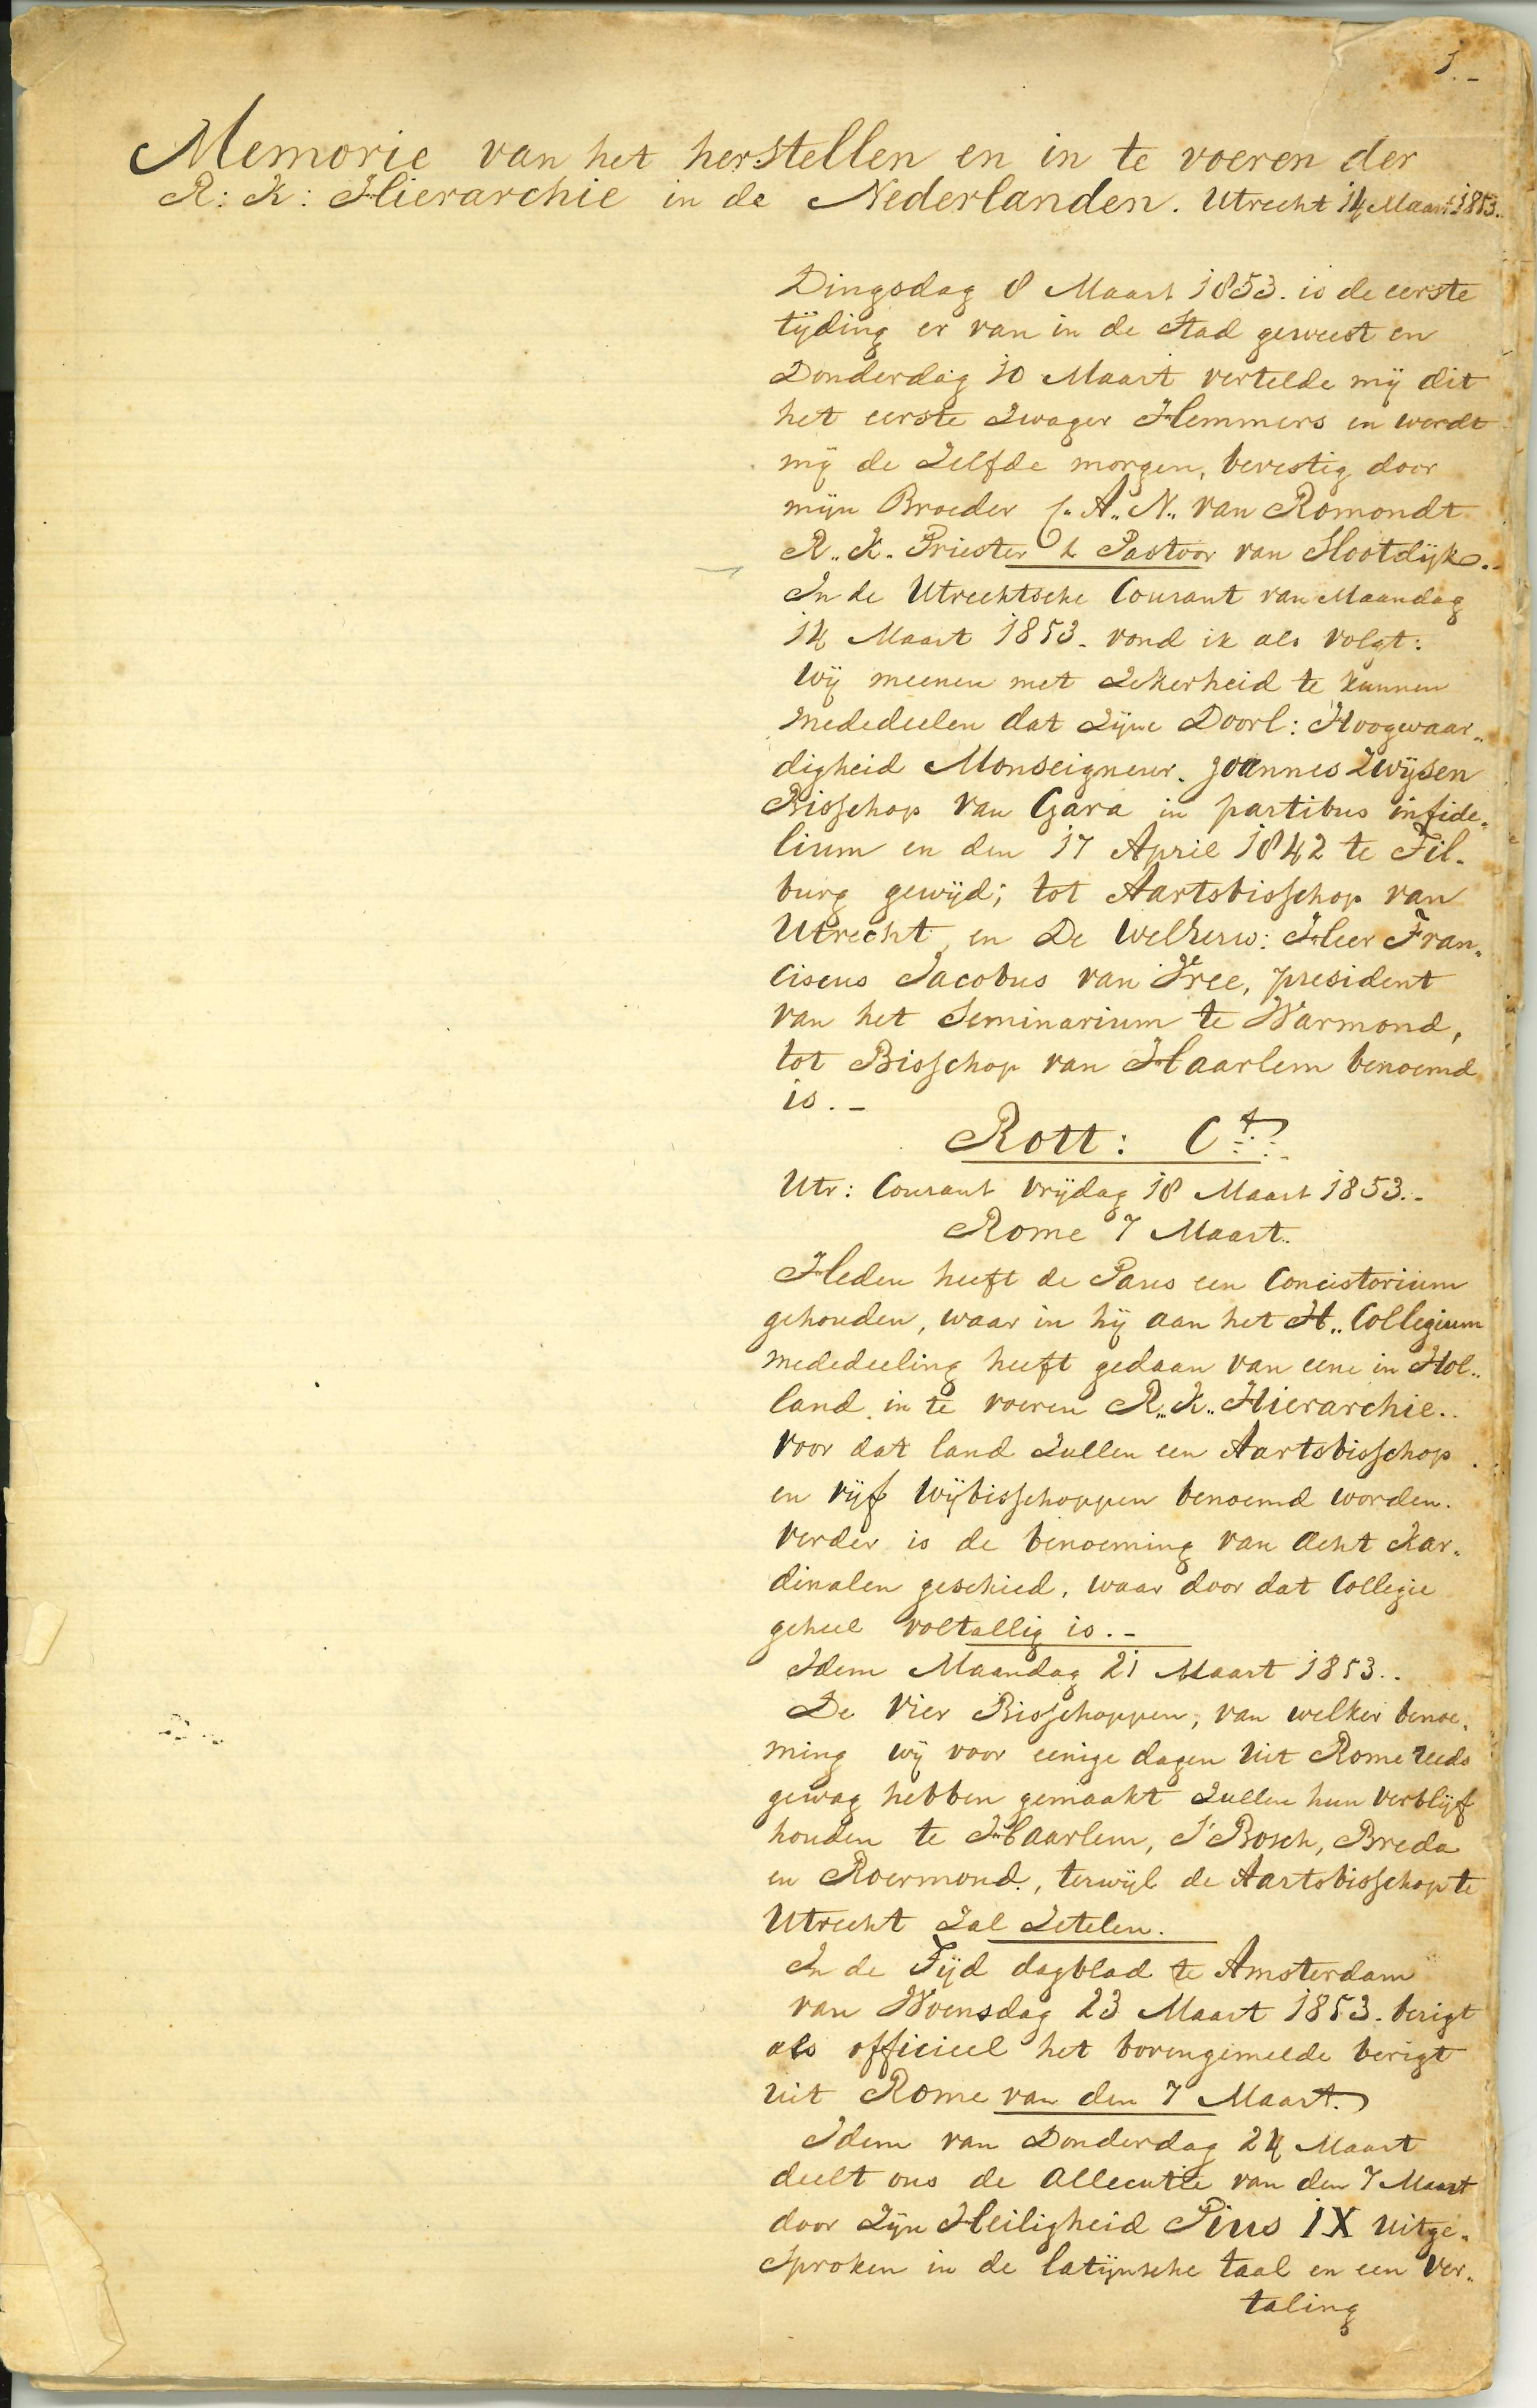 1.-
Memorie van het herstellen en in te voeren der
R: K: Hierarchie in de Nederlanden. Utrecht 14 Maart 1853.
Dingsdag 8 Maart 1853. is de eerste
tijding er van in de Stad geweest en
Donderdag 10 Maart vertelde mij dit
het eerste Zwager Hemmers en werdt
mij de Zelfde morgen, bevestig door
mijn Broeder A.. N.. van Romondt
R.. K. Priester Pastoor van Slootdijk.
In de Utrechtsche Courant van Maandag
14 Maart 1853. vond ik als volgt:
Wij meenen met Zekerheid te kunnen
mededeelen dat Zijne Doorl: Hoogwaar„
digheid Monseigneur. Joannes Zwijsen
Bisschop van Gara in partibus infide„
lium en den 17 April 1842 te Til„
burg gewijd; tot Aartsbisschop van
Utrecht, en De WelEerw: Heer Fran„
ciscus Jacobus van Vree, president
van het Seminarium te Warmond,
tot Bisschop van Haarlem benoemd
is.-
Rott: Ct
Utr: Courant Vrijdag 18 Maart 1853.-
Rome 7 Maart.
Heden heeft de Paus een Concistorium
gehouden, waar in hij aan het H.. Collegium
mededeeling heeft gedaan van eene in Hol„
land in te voeren R.. K.. Hierarchie..
Voor dat land Zullen een Aartsbisschop
en vijf Wijbisschoppen benoemd worden.
Verder is de benoeming van acht Kar„
dinalen geschied, waar door dat Collegie
geheel voltallig is.-
Idem Maandag 21 Maart 1853..
De Vier Bisschoppen, van welker benoe„
ming wij voor eenige dagen uit Rome reeds
gewag hebben gemaakt Zullen hun verblijf
houden te Haarlem, S' Bosch, Breda
en Roermond, terwijl de Aartsbisschop te
Utrecht Zal Zetelen.
In de Tijd dagblad te Amsterdam
van Woensdag 23 Maart 1853. berigt
als officieel het bovengemelde berigt
uit Rome van den 7 Maart.
Idem van Donderdag 24 Maart
deelt ons de Allecutie van den 7 Maart
door Zijn Heiligheid Pius IX uitge„
sproken in de latijnsche taal en een Ver„
taling